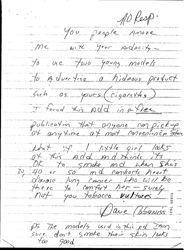 NO Resp.
You people Amaze
me with your Audacity -
to use two young models
to Advertise a hideous product
such as yours (cigarettes)
I found this Add in a free
publication that anyone can pick up
at anytime at most convenience stores
What if 1 little girl looks
at this Add and thinks its
OK to smoke and when she's
30, 40 or so and contracts heart
disease, lung cancer who will be
there to comfort her - surely
not you tobacco vultures!
Dave
PS The models used in this ad I'm
sure don't smoke their skin looks
too good